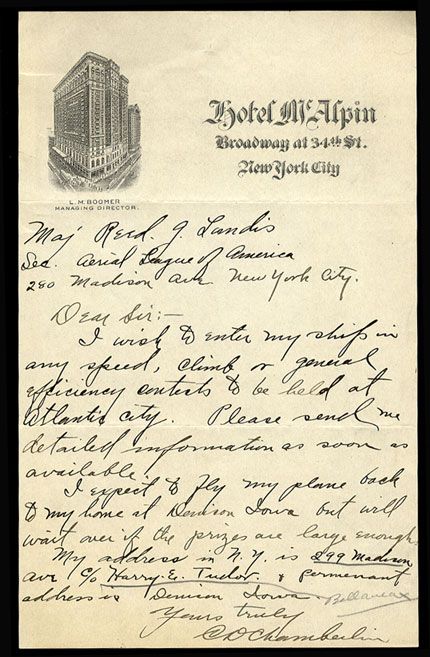 Hotel McAlpin
Broadway at 34th St.
New York City
L. M. BOOMER
MANAGING DIRECTOR.
Maj Reed. G. Landis
Sec. Aerial League of America
280 Madison Ave New York City.
Dear Sir:-
I wish to enter my ship in
any speed, climb or general
efficiency contests to be held at
Atlantic city. Please send me
detailed information as soon as
available.
I expect to fly my plane back
to my home at Denison Iowa but will
wait over if the prizes are large enough.
My address in N.Y. is 299 Madison
ave c/o Harry. E. Tudor. & permenant
address is Denison Iowa.
Yours truly
C D Chamberlin